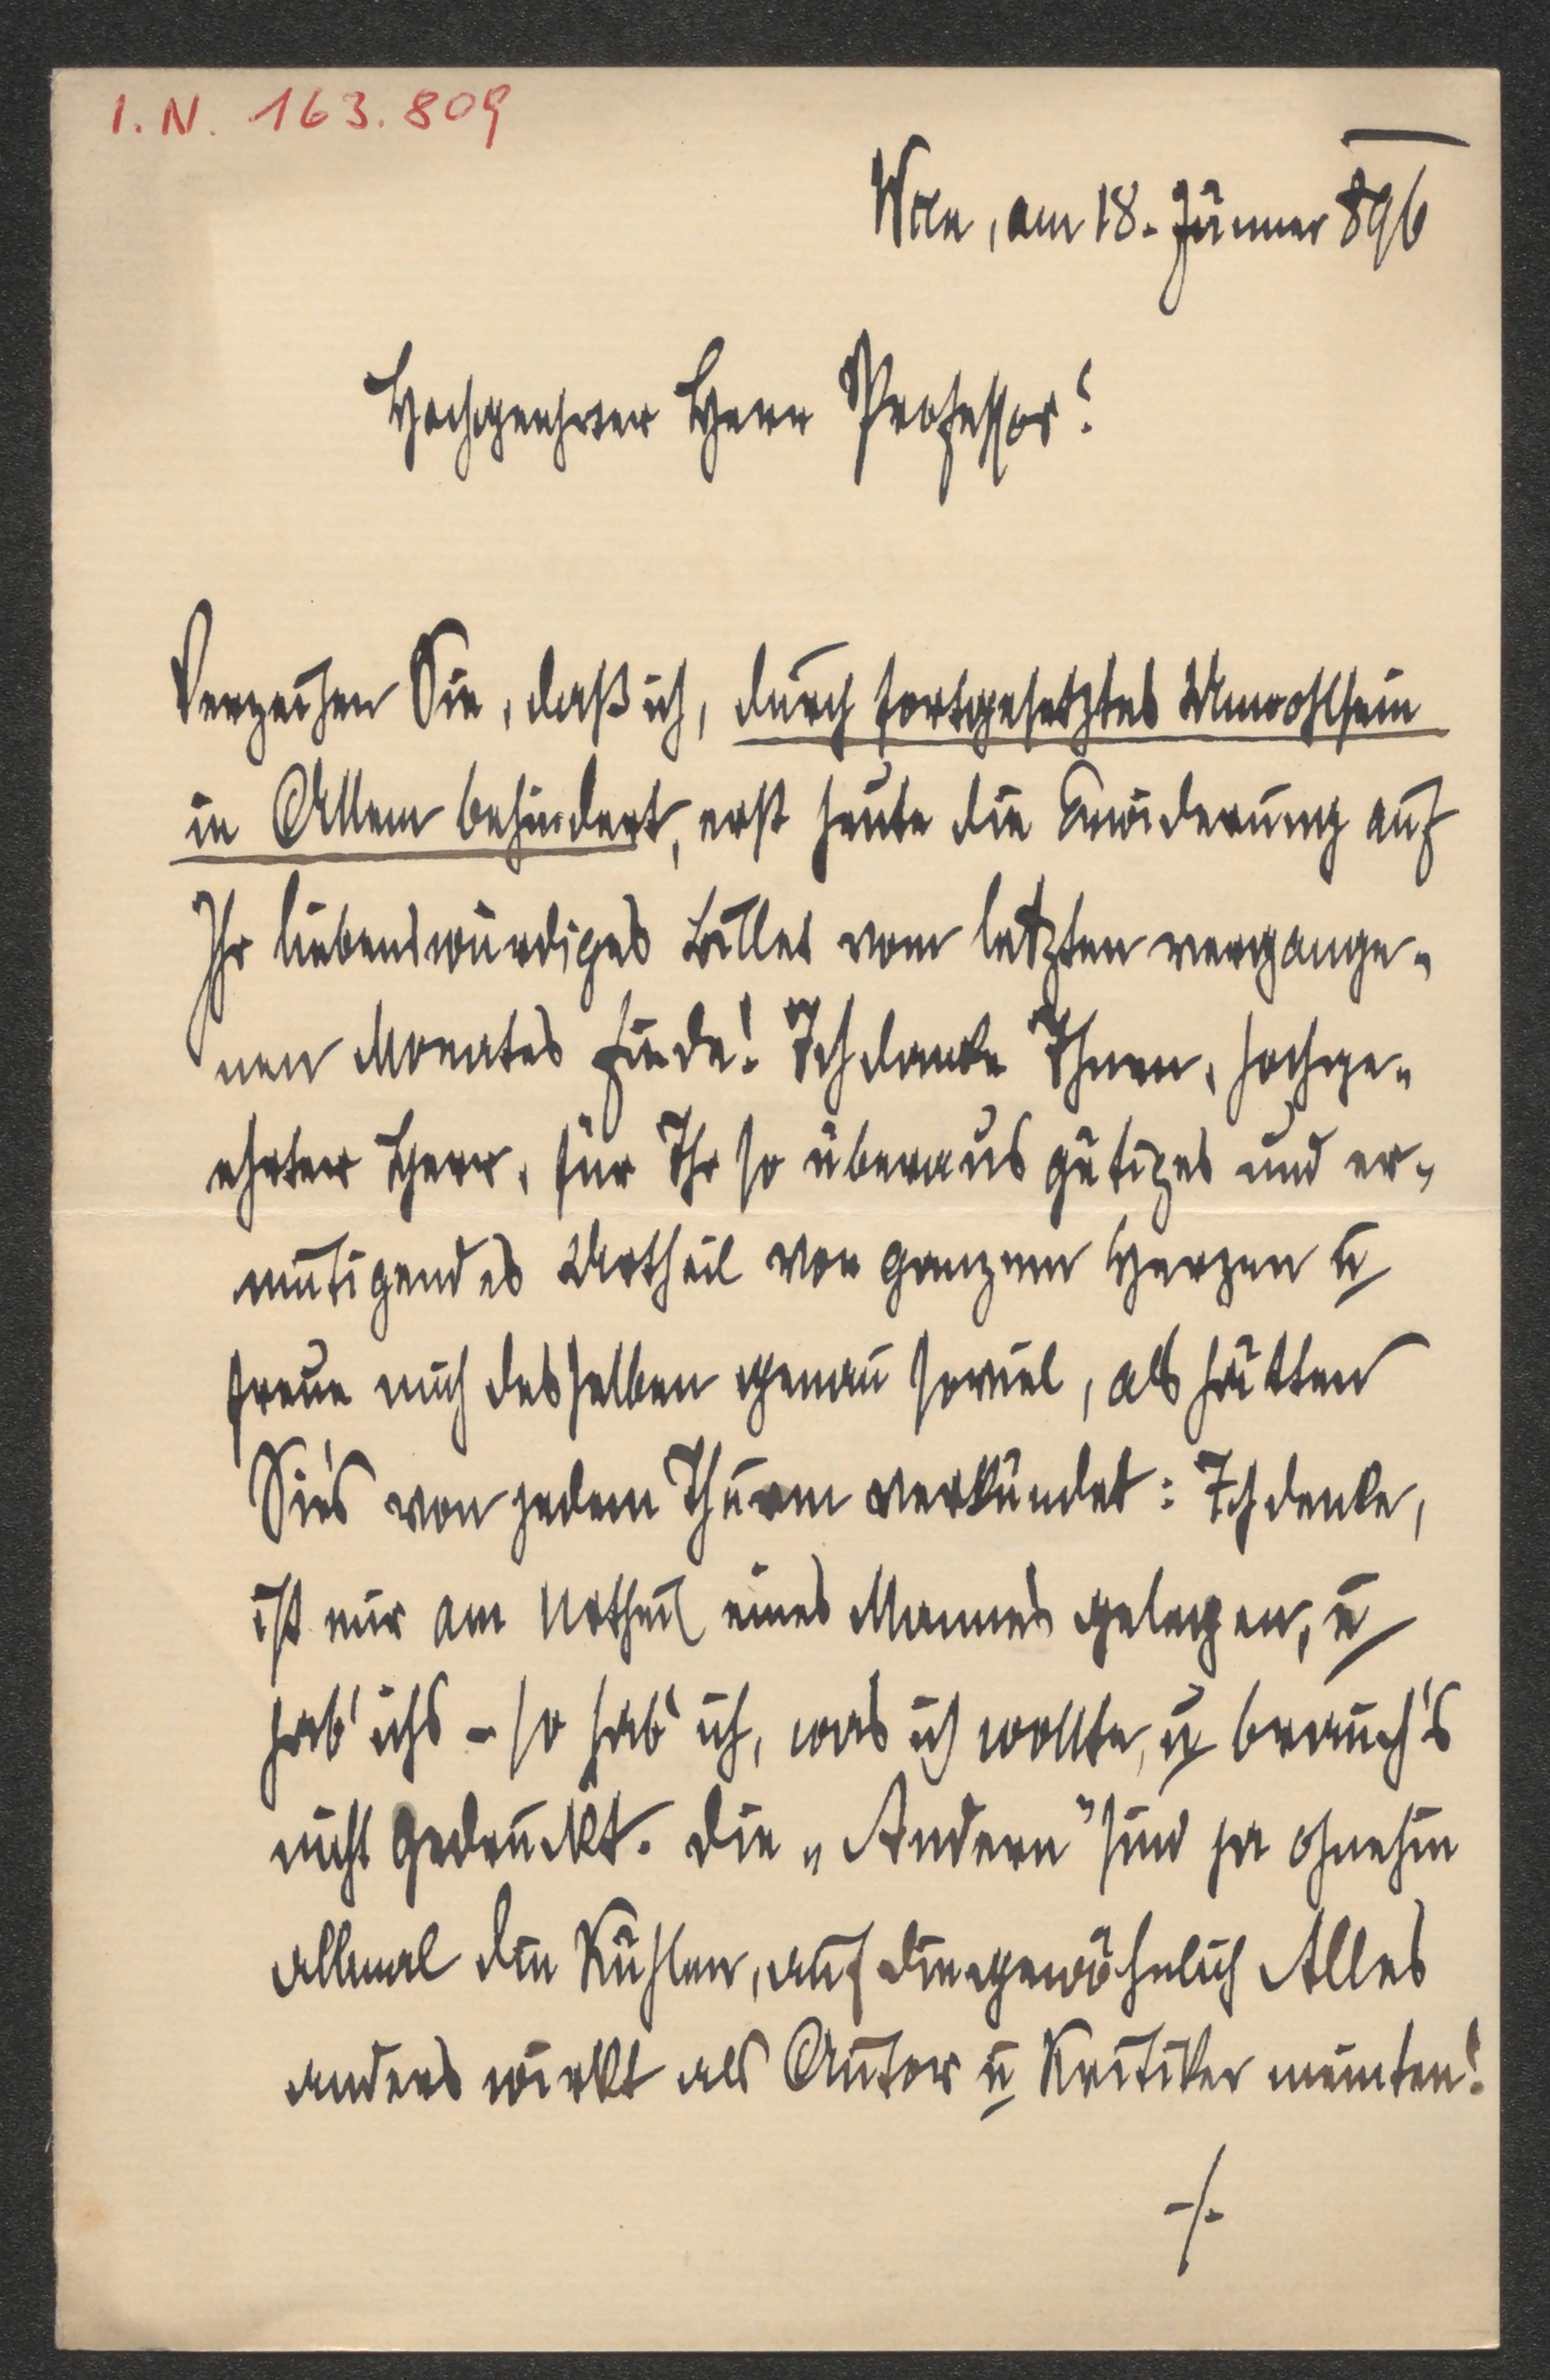 I. N. 163.809
Wien, am 18. Jänner 896
Hochgeehrter Herr Professor!
Verzeihen Sie, daß ich, durch fortgesetztes Unwohlsein
in Allem behindert, erst heute die Erwiderung auf
Ihr liebenswürdiges Billet vom letzten vergange-
nen Monates finde! Ich danke Ihnen, hochge-
ehrter Herr, für Ihr so überaus gütiges und er-
mutigendes Urtheil von ganzem Herzen u
freue mich desselben genau soviel, als hätten
Sie's von jedem Thurm verkündet: Ich denke,
ist mir am Urtheil eines Mannes gelegen, u
hab' ichs - so hab' ich, was ich wollte, u brauch's
nicht gedruckt. Die „Andern" sind ja ohnehin
allmal die Kühlen, auf die gewöhnlich Alles
anders wirkt als Autor u Kritiker meinten!
-/-